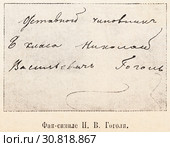 Отставной чиновникъ
8 класса Николай
Васильевичъ Гоголь
Фак-симиле Н. В. Гоголя.
30.818.867